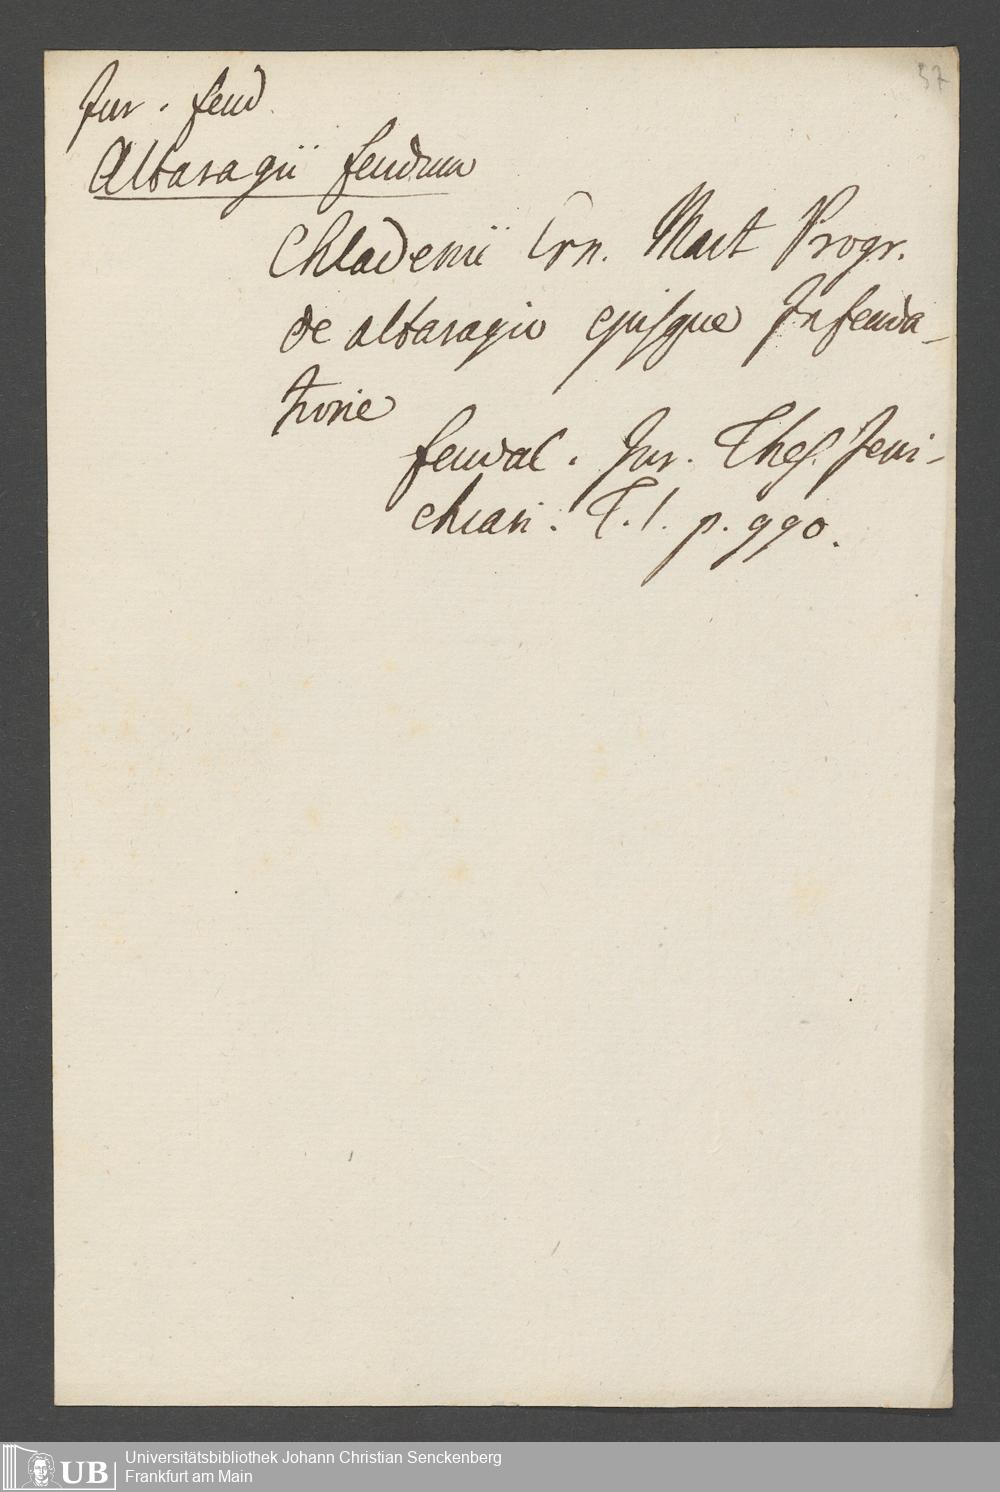 57
Jur. feud
Altaragii feudum
Chladenii Ern. Mart Progr.
de altaragio ejusque Infeuda-
tione
feudal. Jur. Thes. Jeni-
chian. T. 1. p. 990.
UB
Universitätsbibliothek Johann Christian Senckenberg
Frankfurt am Main